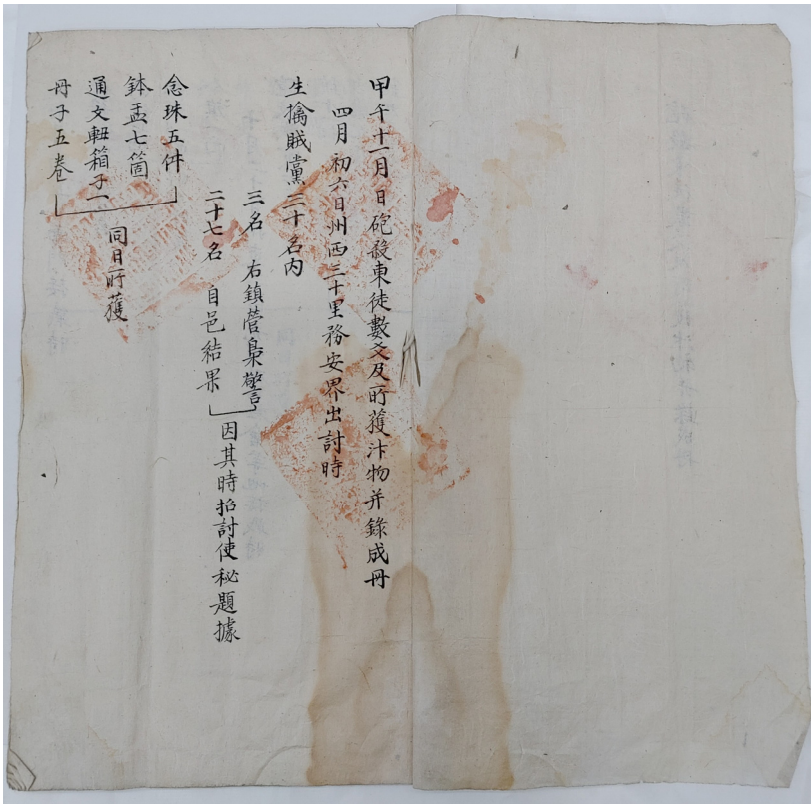 甲午十一月日砲殺東徒數爻及所獲汁物并錄成冊
四月初六日州西三十里務安界出討時
生擒賊黨三十名內
三名 右鎮營梟警
二十七名 自邑結果
因其時招討使秘題據
念珠五件
鉢盂七箇
通文軸箱子一
冊子五卷
同日所獲